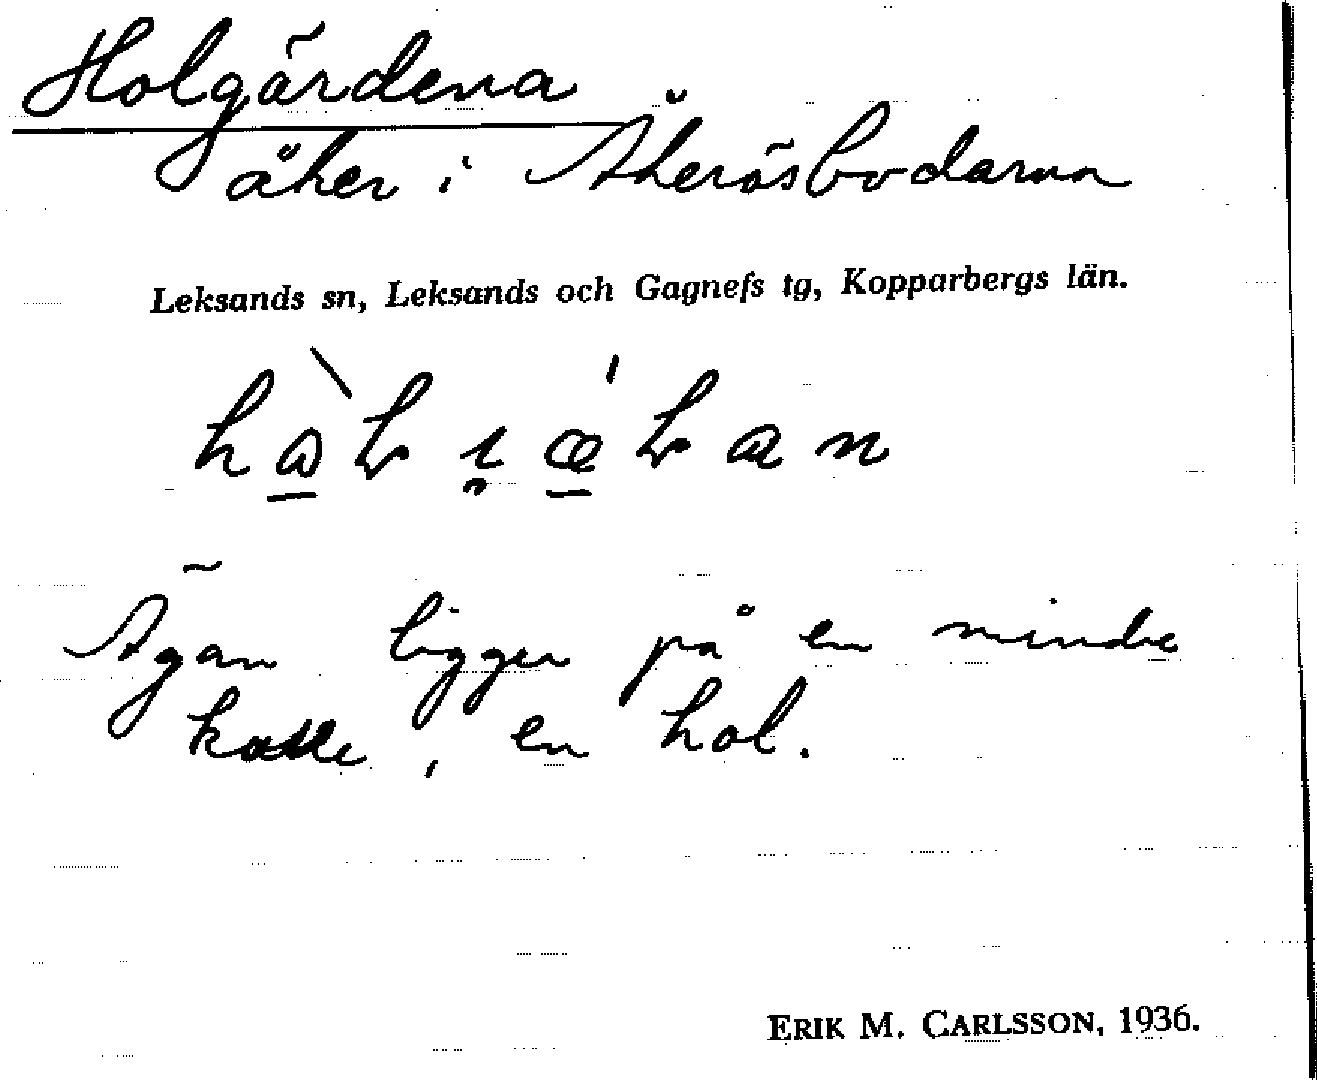 Holgärdena
åker i Åkeröbodarna
Leksands sn, Leksands och Gagnefs tg, Kopparbergs län.
Ägan ligger på en mindre
kulle, en hol.
ERIK M. CARLSSON, 1936.